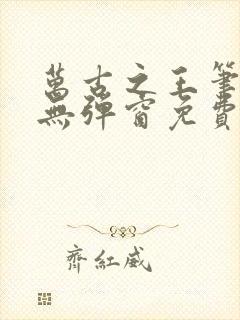 萬古之王筆
無彈窗免費
齊紅威